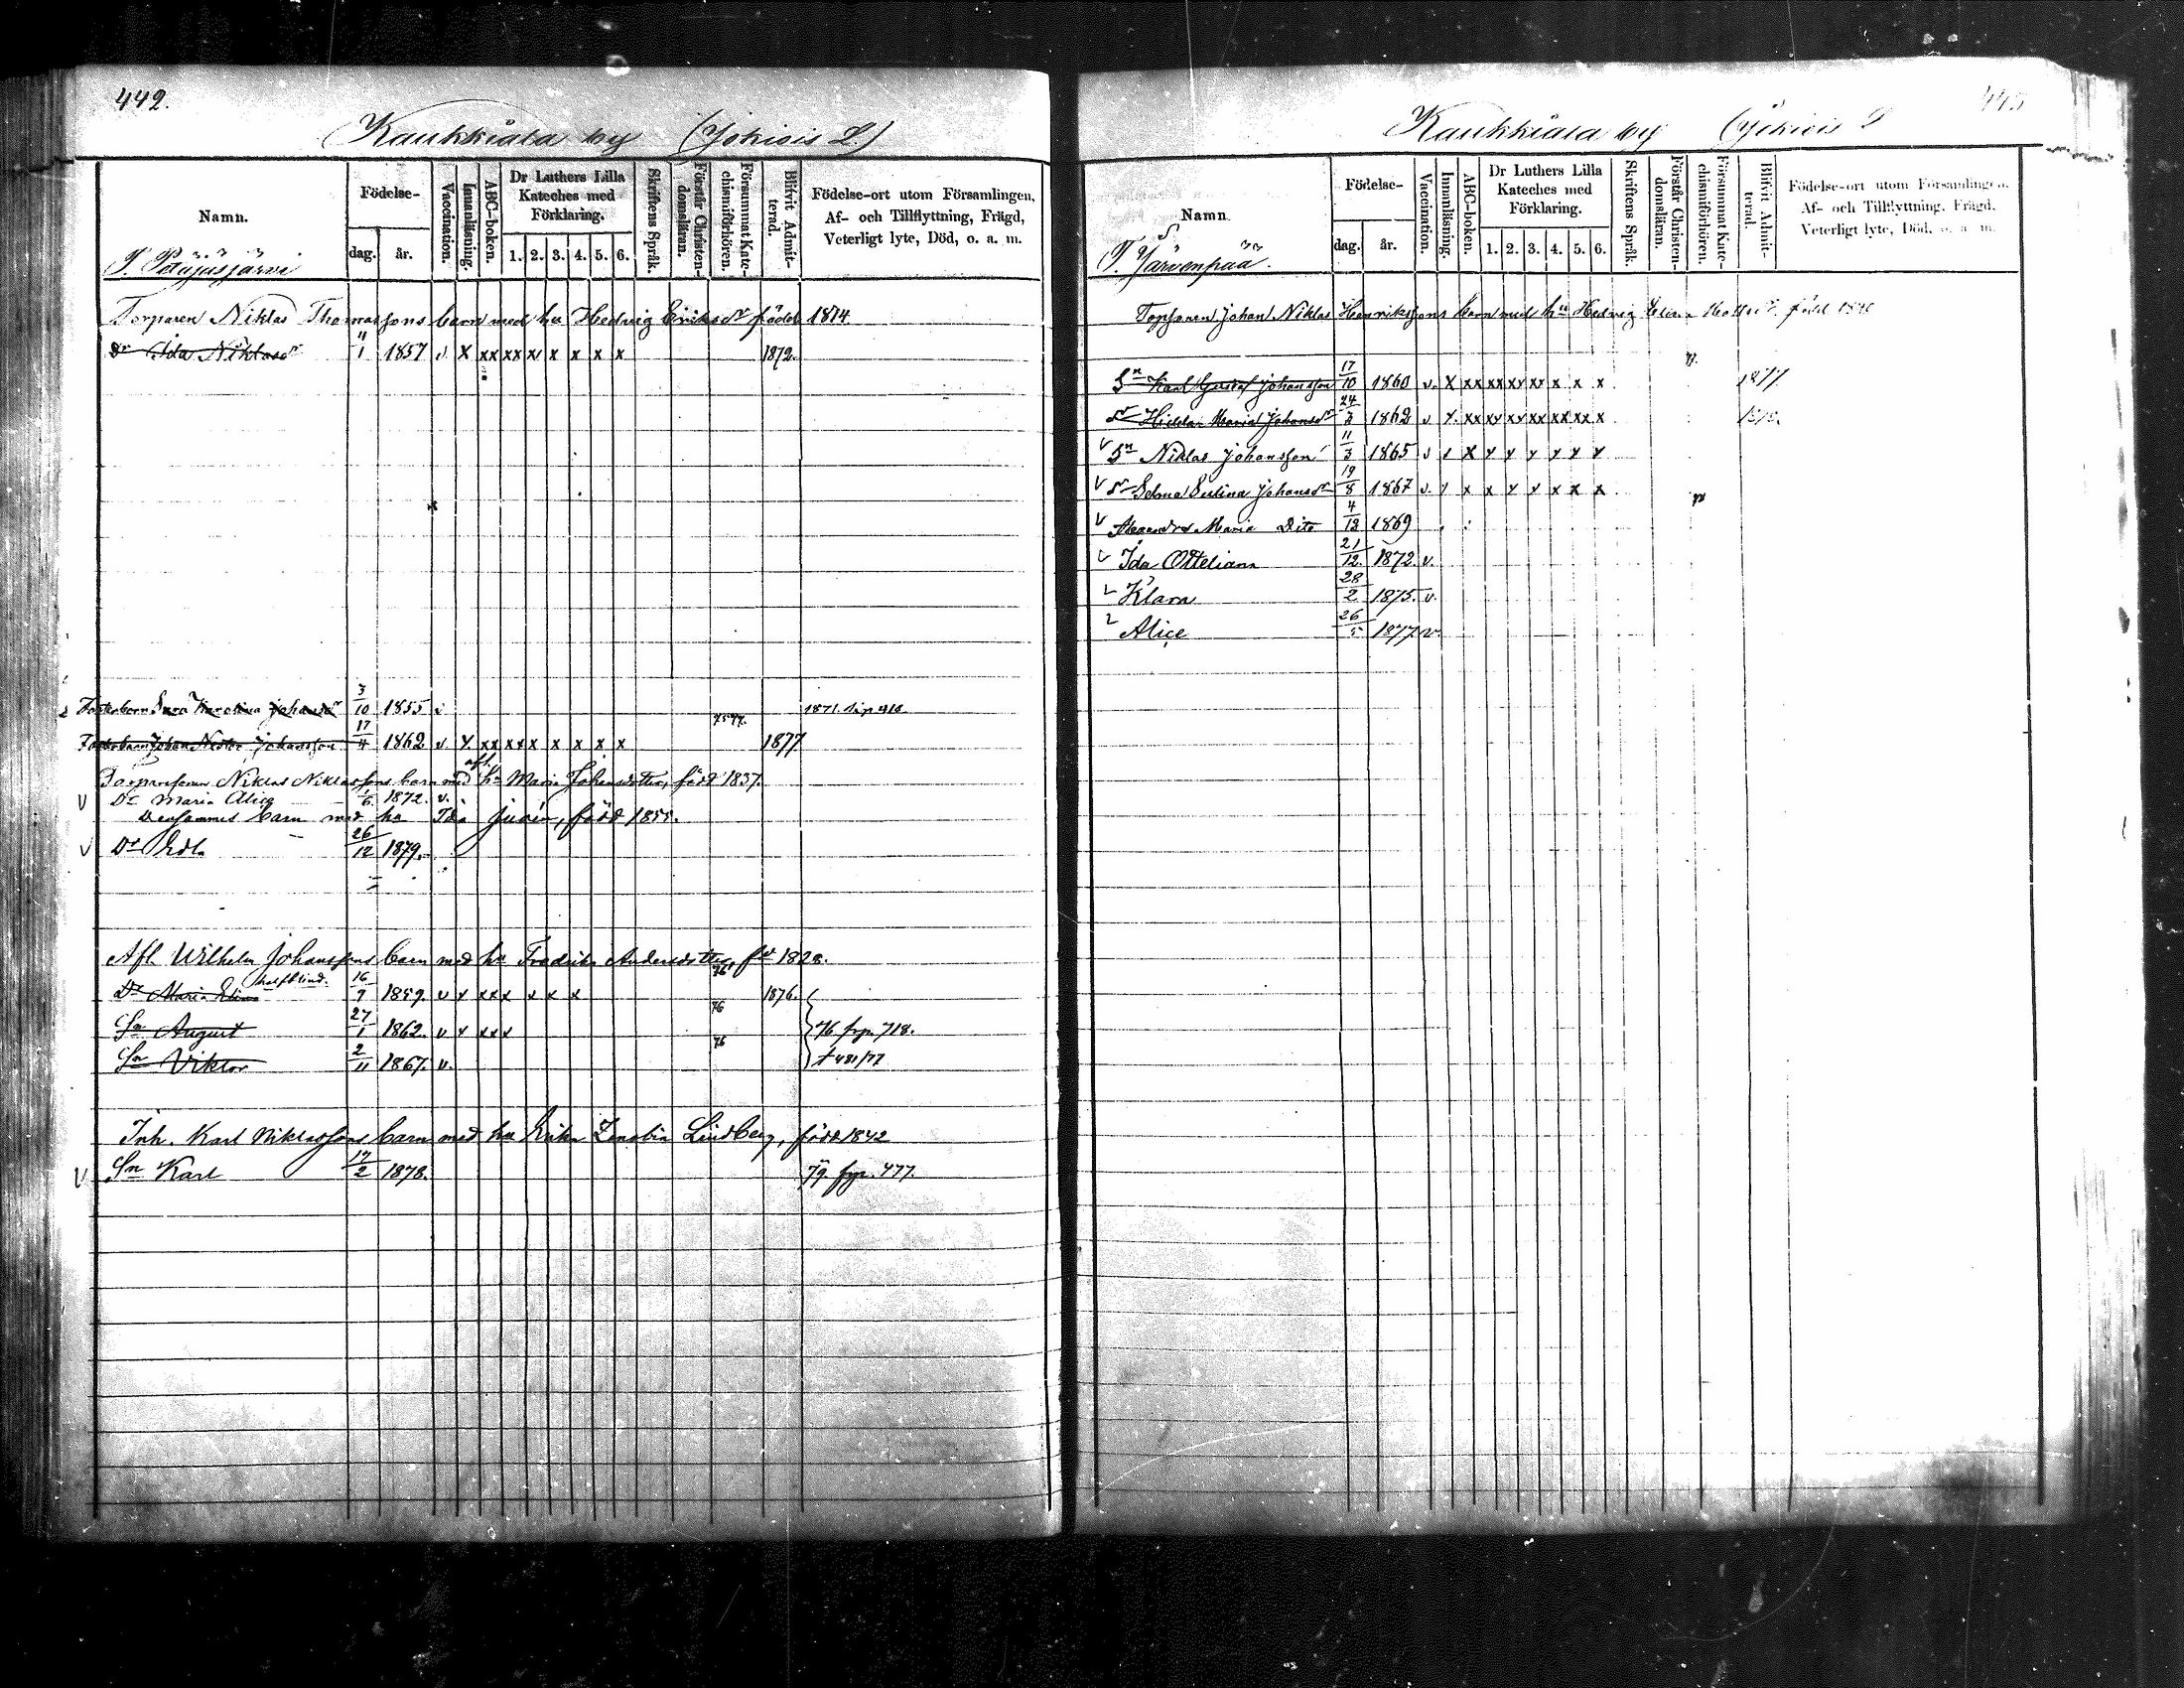 442.
Kaukkiala by (Jokiois L.)
Namn.
Födelse-
dag.
år.
Vaccination.
Innanläsning.
ABC-boken.
Dr Luthers Lilla Kateches med Förklaring.
1. 2. 3. 4. 5. 6.
Skriftens Språk.
Förstår Christendomsläran.
Försummat Katechismiförhören.
Blifvit Admitterad.
Födelse-ort utom Församlingen, Af- och Tillflyttning, Frägd, Veterligt lyte, Död, o. a. m.
T. Pääjäsjärvi
Torparen Niklas Thomassons barn med hu Hedvig Eriksdr född 1814
Dr Ida Niklasdr 11/1 1857 v. x xx xx xx x x x x 1872.
Fosterbarn Eva Karolina Johansdr 3/10 1855 v 1871 sip 410
Fosterbarn Johan Nestor Johansson 17/4 1862 v. x xx xx x x x x x 1877
afl.
Torparesonen Niklas Niklassons barn med hu Maria Johansdotter, född 1837.
V Dr Maria Alice 1/6 1872. v.
Densammes barn med hu Ida Jusén, född 1855.
V Dr Edla 26/12 1879.
Afl Wilhelm Johanssons barn med hu Fredrika Andersdotter, fd 1828.
halfblind.
Dr Maria Elina 16/9 1859. v x xx x x x x 76 1876.
Sn August 27/1 1862. v x xx x 76 76 frp 718.
Sn Viktor 2/11 1867. v. 76
Inh. Karl Niklassons barn med hu Erika Zenobia Lindberg, född 1842
V Sn Karl 17/2 1878. 79 frp. 477.
443
Kaukkiala by (Jokiois L
Namn.
Födelse-
dag.
år.
Vaccination.
Innanläsning.
ABC-boken.
Dr Luthers Lilla Kateches med Förklaring.
1. 2. 3. 4. 5. 6.
Skriftens Språk.
Förstår Christendomsläran.
Försummat Katechismiförhören.
Blifvit Admitterad.
Födelse-ort utom Församlingen, Af- och Tillflyttning, Frägd, Veterligt lyte, Död, o. a. m.
T. Järvenpää.
Torparen Johan Niklas Henrikssons barn med hu Hedvig Elina
Sn Karl Gustaf Johansson 17/10 1860 v. x xx xx xx xx x x x 1877
dr Hilda Maria Johansdr 24/3 1862 v x. xx xx xx xx xx xx x
V Sn Niklas Johansson 11/3 1865 v x x x x x x x x
V dr Selma Eulina Johansdr 19/8 1867 v. x x x x x x x x
V Alexandra Maria Dito 4/12 1869
V Ida Otteliana 21/12. 1872. v.
V Klara 28/2 1875. v.
V Alice 26/5 1877 v